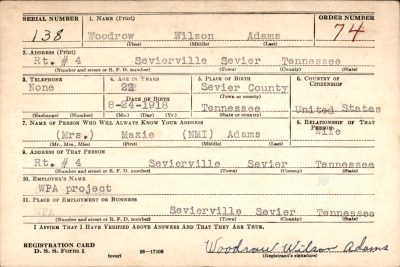 SERIAL NUMBER 1. NAME (Print) ORDER NUMBER
138 Woodrow Wilson Adams 74
(First) (Middle) (Last)
2. ADDRESS (Print)
Rt. # 4 Sevierville Sevier Tennessee
(Number and street or R. F. D. number) (Town) (County) (State)
3. TELEPHONE 4. AGE IN YEARS 5. PLACE OF BIRTH 6. COUNTRY OF CITIZENSHIP
None 22 Sevier County
DATE OF BIRTH (Town) (County)
8-24-1918 Tennessee United States
(Exchange) (Number) (Mo.) (Day) (Yr.) (State or country)
7. NAME OF PERSON WHO WILL ALWAYS KNOW YOUR ADDRESS 8. RELATIONSHIP OF THAT PERSON
(Mrs.) Mazie (NMI) Adams Wife
(Mr., Mrs., Miss) (First) (Middle) (Last)
9. ADDRESS OF THAT PERSON
Rt. # 4 Sevierville Sevier Tennessee
(Number and street or R. F. D. number) (Town) (County) (State)
10. EMPLOYER'S NAME
WPA project
11. PLACE OF EMPLOYMENT OR BUSINESS
WPA Sevierville Sevier Tennessee
(Number and street or R. F. D. number) (Town) (County) (State)
I AFFIRM THAT I HAVE VERIFIED ABOVE ANSWERS AND THAT THEY ARE TRUE.
REGISTRATION CARD
D. S. S. Form 1 (over) 16-17105 Woodrow Wilson Adams
(Registrant's signature)